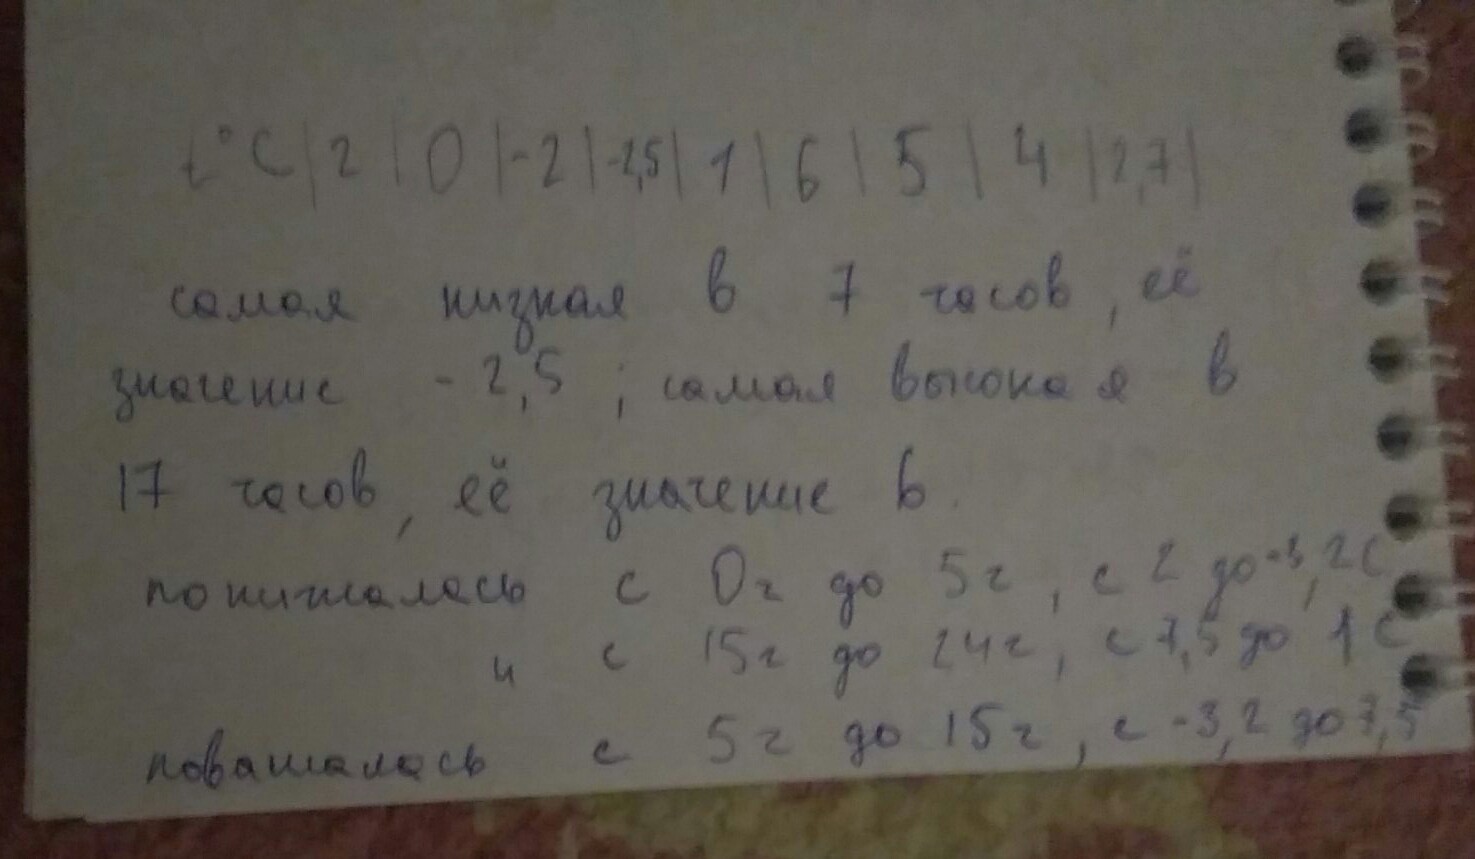 t°C | 2 | 0 | -2 | -2,5 | 1 | 6 | 5 | 4 | 2,7 |
самая низкая в 7 часов, её
значение -2,5 ; самая высокая в
17 часов, её значение 6.
понижалась с 0ч до 5ч, с 2 до -3,2С
и с 15ч до 24ч, с 7,5 до 1С
повашалась с 5ч до 15ч, с -3,2 до 7,5